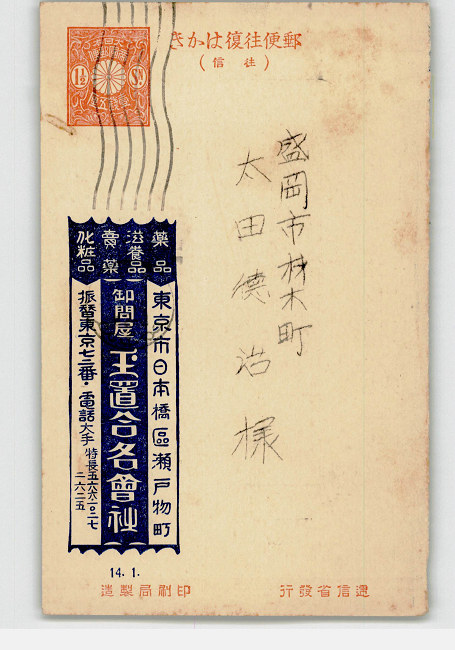 郵便往復はかき
(往信)
1½ Sn.
盛岡市材木町
太田德治様
薬品
滋養品
賣薬
化粧品
東京市日本橋區瀬戸物町
卸問屋 玉置合名會社
振替東京七三番・電話大手特長五六六一〇二七
二六二五
14.1.
印刷局製造
遞信省發行